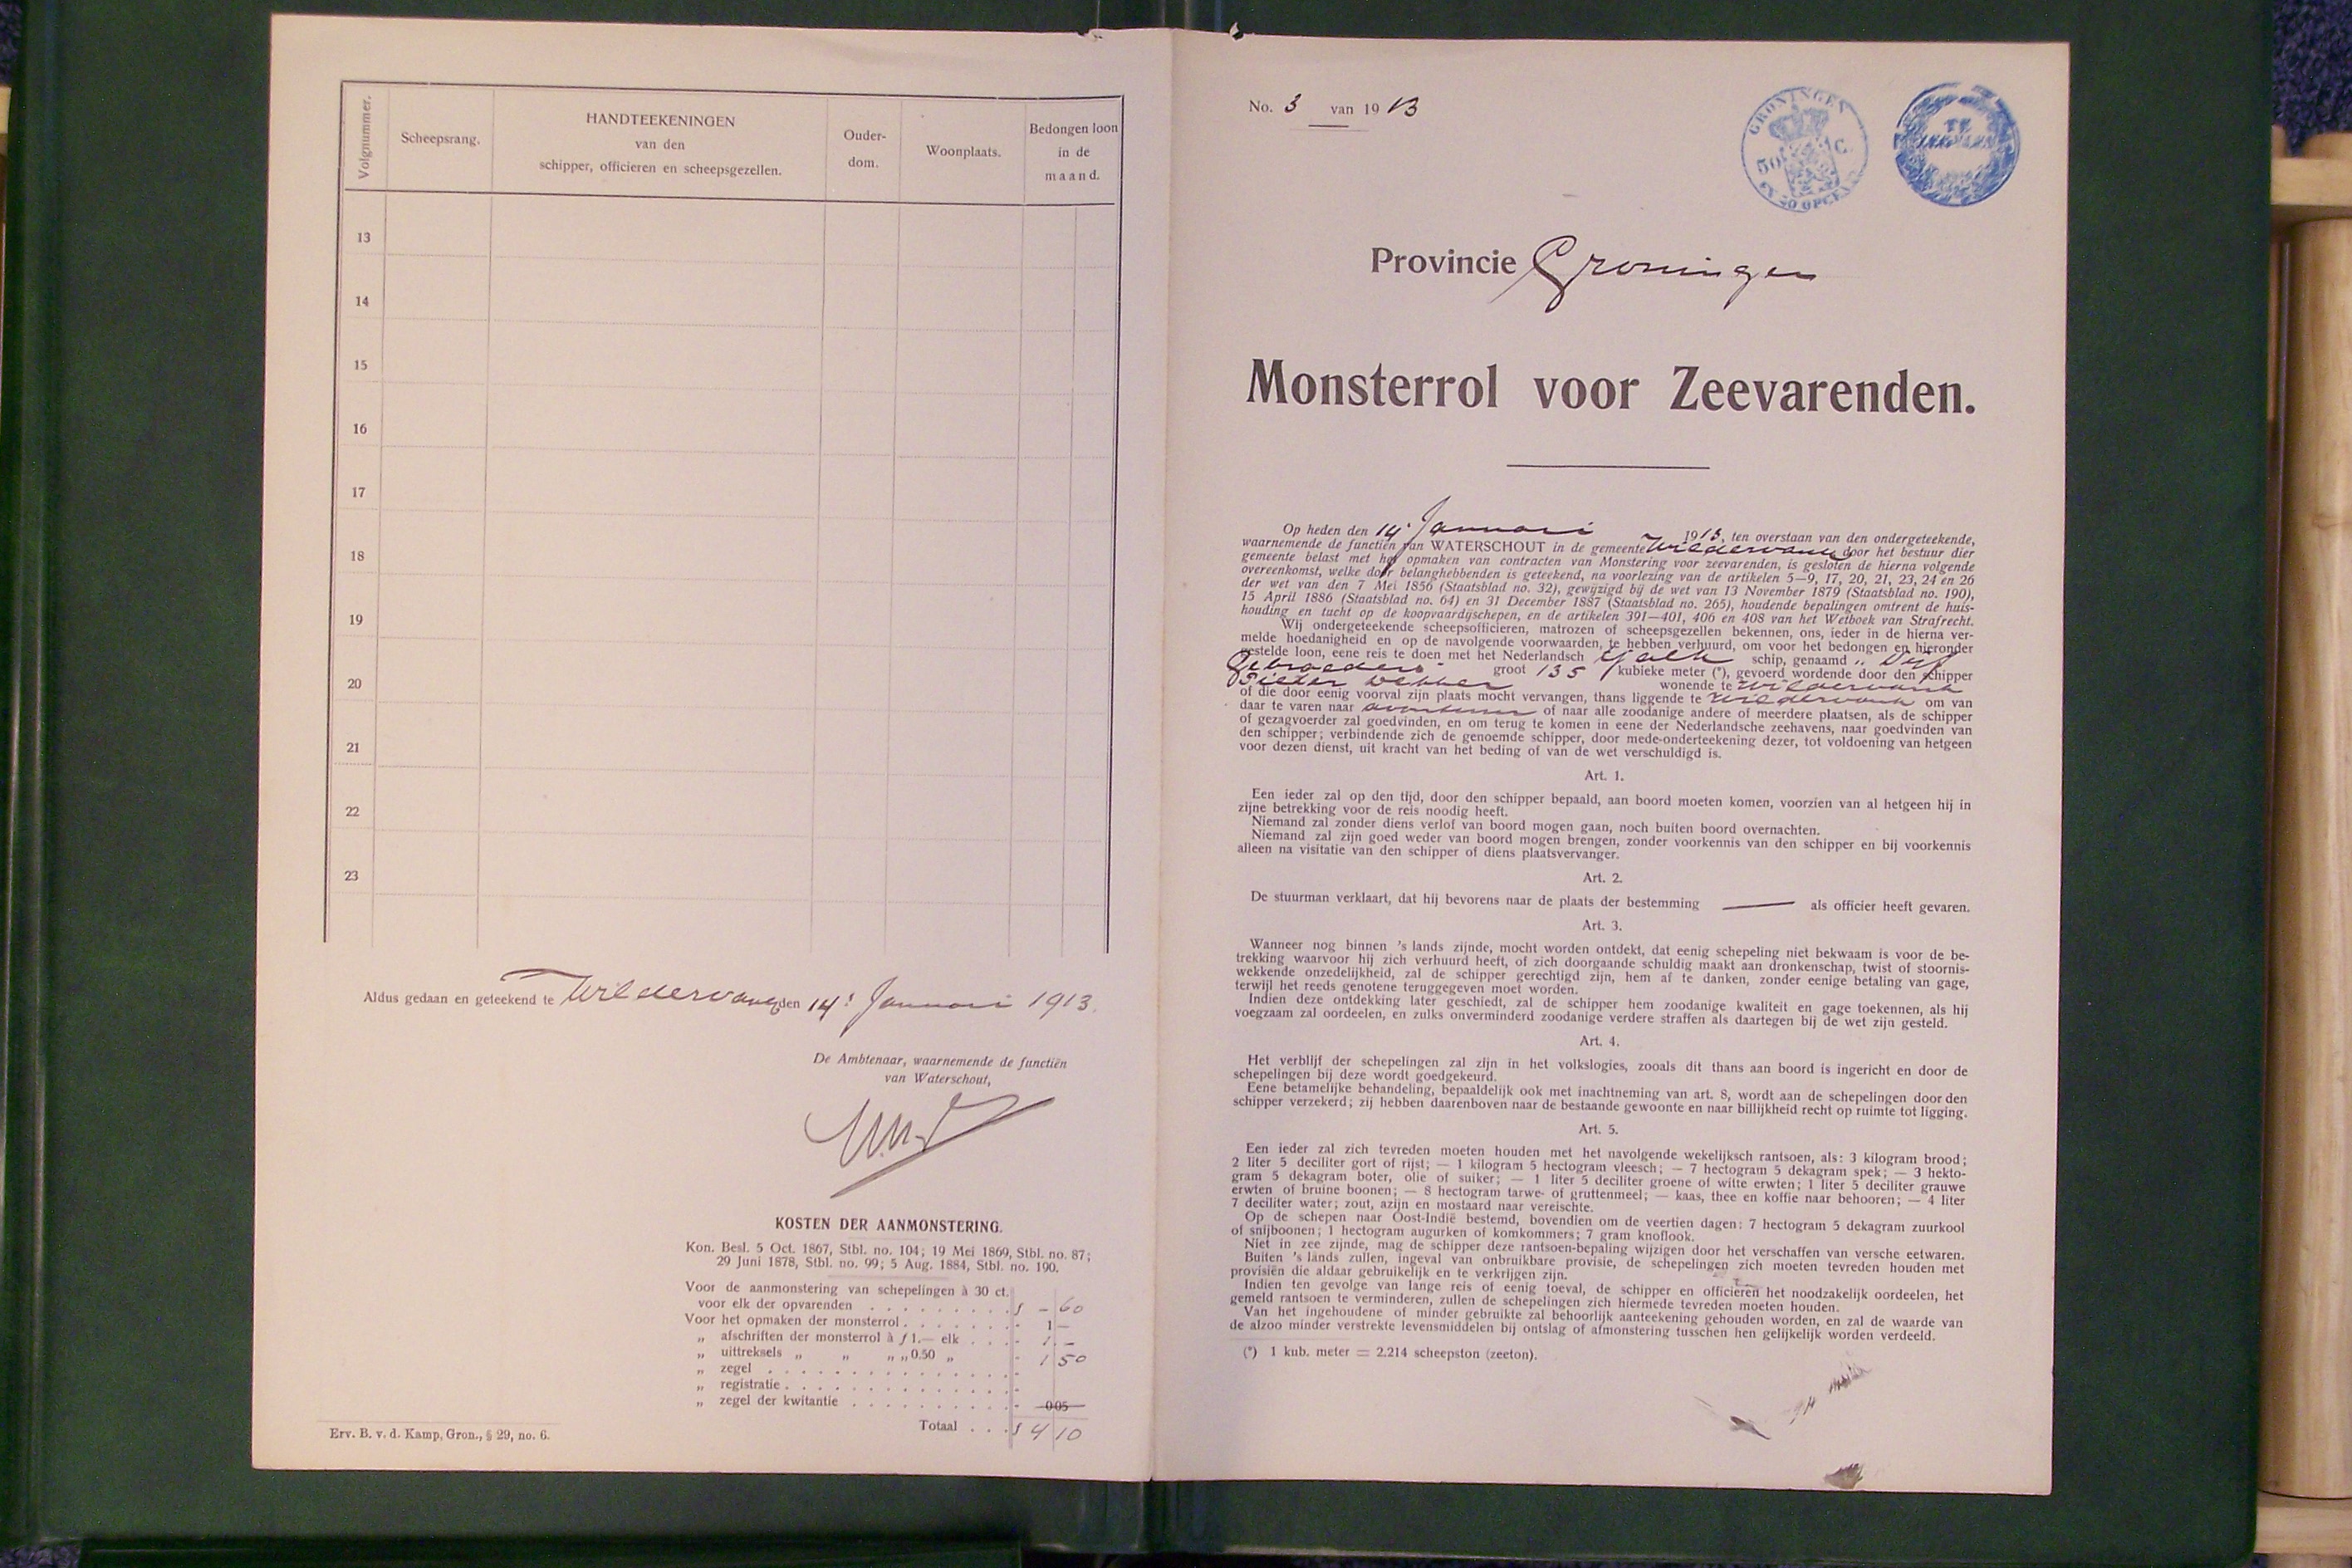 Volgnummer.
Scheepsrang.
HANDTEEKENINGEN
van den
schipper, officieren en scheepsgezellen.
Ouder-
dom.
Woonplaats.
Bedongen loon
in de
maand.
13
14
15
16
17
18
19
20
21
22
23
Aldus gedaan en geteekend te Wildervank den 14e Januari 1913.
De Ambtenaar, waarnemende de functiën
van Waterschout,
KOSTEN DER AANMONSTERING.
Kon. Besl. 5 Oct. 1867, Stbl. no. 104; 19 Mei 1869, Stbl. no. 87;
29 Juni 1878, Stbl. no. 99; 5 Aug. 1884, Stbl. no. 190.
Voor de aanmonstering van schepelingen à 30 ct.
voor elk der opvarenden . . . . . . . . . f - 60
Voor het opmaken der monsterrol . . . . . . . - 1 -
„ afschriften der monsterrol à f 1.— elk . . . - 1 -
„ uittreksels „ „ „ „ 0.50 „ - 1 50
„ zegel . . . . . . . . . . . . . . . -
„ registratie . . . . . . . . . . . . . . -
„ zegel der kwitantie . . . . . . . . . . - 0 05
Totaal . . . f 4 10
Erv. B. v. d. Kamp, Gron., § 29, no. 6.
No. 3 van 1913
GRONINGEN
50 C.
Provincie Groningen
Monsterrol voor Zeevarenden.
Op heden den 14e Januari 1913, ten overstaan van den ondergeteekende,
waarnemende de functiën van WATERSCHOUT in de gemeente Wildervank door het bestuur dier
gemeente belast met het opmaken van contracten van Monstering voor zeevarenden, is gesloten de hierna volgende
overeenkomst, welke door belanghebbenden is geteekend, na voorlezing van de artikelen 5—9, 17, 20, 21, 23, 24 en 26
der wet van den 7 Mei 1856 (Staatsblad no. 32), gewijzigd bij de wet van 13 November 1879 (Staatsblad no. 190),
15 April 1886 (Staatsblad no. 64) en 31 December 1887 (Staatsblad no. 265), houdende bepalingen omtrent de huis-
houding en tucht op de koopvaardijschepen, en de artikelen 391—401, 406 en 408 van het Wetboek van Strafrecht.
Wij ondergeteekende scheepsofficieren, matrozen of scheepsgezellen bekennen, ons, ieder in de hierna ver-
melde hoedanigheid en op de navolgende voorwaarden, te hebben verhuurd, om voor het bedongen en hieronder
gestelde loon, eene reis te doen met het Nederlandsch tjalk schip, genaamd „
Gebroeders groot 135 kubieke meter (*), gevoerd wordende door den schipper
Pieter Dekker wonende te Wildervank
of die door eenig voorval zijn plaats mocht vervangen, thans liggende te Wildervank om van
daar te varen naar avontuur of naar alle zoodanige andere of meerdere plaatsen, als de schipper
of gezagvoerder zal goedvinden, en om terug te komen in eene der Nederlandsche zeehavens, naar goedvinden van
den schipper; verbindende zich de genoemde schipper, door mede-onderteekening dezer, tot voldoening van hetgeen
voor dezen dienst, uit kracht van het beding of van de wet verschuldigd is.
Art. 1.
Een ieder zal op den tijd, door den schipper bepaald, aan boord moeten komen, voorzien van al hetgeen hij in
zijne betrekking voor de reis noodig heeft.
Niemand zal zonder diens verlof van boord mogen gaan, noch buiten boord overnachten.
Niemand zal zijn goed weder van boord mogen brengen, zonder voorkennis van den schipper en bij voorkennis
alleen na visitatie van den schipper of diens plaatsvervanger.
Art. 2.
De stuurman verklaart, dat hij bevorens naar de plaats der bestemming — als officier heeft gevaren.
Art. 3.
Wanneer nog binnen 's lands zijnde, mocht worden ontdekt, dat eenig schepeling niet bekwaam is voor de be-
trekking waarvoor hij zich verhuurd heeft, of zich doorgaande schuldig maakt aan dronkenschap, twist of stoornis-
wekkende onzedelijkheid, zal de schipper gerechtigd zijn, hem af te danken, zonder eenige betaling van gage,
terwijl het reeds genotene teruggegeven moet worden.
Indien deze ontdekking later geschiedt, zal de schipper hem zoodanige kwaliteit en gage toekennen, als hij
voegzaam zal oordeelen, en zulks onverminderd zoodanige verdere straffen als daartegen bij de wet zijn gesteld.
Art. 4.
Het verblijf der schepelingen zal zijn in het volkslogies, zooals dit thans aan boord is ingericht en door de
schepelingen bij deze wordt goedgekeurd.
Eene betamelijke behandeling, bepaaldelijk ook met inachtneming van art. 8, wordt aan de schepelingen door den
schipper verzekerd; zij hebben daarenboven naar de bestaande gewoonte en naar billijkheid recht op ruimte tot ligging.
Art. 5.
Een ieder zal zich tevreden moeten houden met het navolgende wekelijksch rantsoen, als: 3 kilogram brood;
2 liter 5 deciliter gort of rijst; — 1 kilogram 5 hectogram vleesch; — 7 hectogram 5 dekagram spek; — 3 hekto-
gram 5 dekagram boter, olie of suiker; — 1 liter 5 deciliter groene of witte erwten; 1 liter 5 deciliter grauwe
erwten of bruine boonen; — 8 hectogram tarwe- of gruttenmeel; — kaas, thee en koffie naar behooren; — 4 liter
7 deciliter water; zout, azijn en mostaard naar vereischte.
Op de schepen naar Oost-Indië bestemd, bovendien om de veertien dagen: 7 hectogram 5 dekagram zuurkool
of snijboonen; 1 hectogram augurken of komkommers; 7 gram knoflook.
Niet in zee zijnde, mag de schipper deze rantsoen-bepaling wijzigen door het verschaffen van versche eetwaren.
Buiten 's lands zullen, ingeval van onbruikbare provisie, de schepelingen zich moeten tevreden houden met
provisiën die aldaar gebruikelijk en te verkrijgen zijn.
Indien ten gevolge van lange reis of eenig toeval, de schipper en officieren het noodzakelijk oordeelen, het
gemeld rantsoen te verminderen, zullen de schepelingen zich hiermede tevreden moeten houden.
Van het ingehoudene of minder gebruikte zal behoorlijk aanteekening gehouden worden, en zal de waarde van
de alzoo minder verstrekte levensmiddelen bij ontslag of afmonstering tusschen hen gelijkelijk worden verdeeld.
(*) 1 kub. meter = 2.214 scheepston (zeeton).